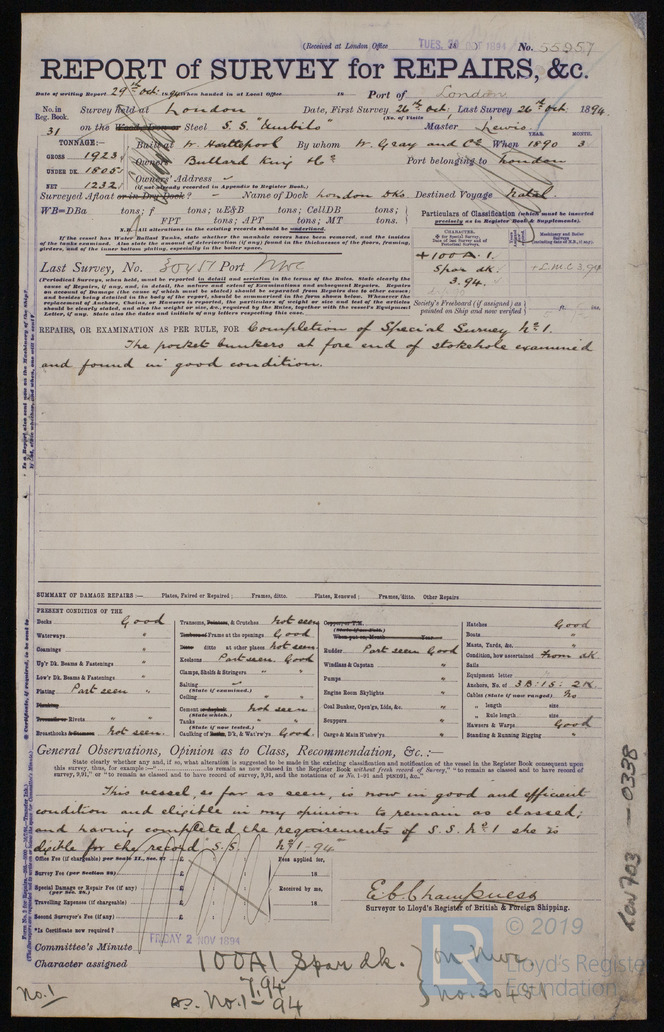 (Received at London Office TUES. 30 OCT 1894 18 ) No. 55957
REPORT of SURVEY for REPAIRS, &c.
Date of writing Report 29th Oct. 1894 When handed in at Local Office 18 Port of London
No. in Reg. Book. Survey held at London Date, First Survey 26th Oct. Last Survey 26th Oct. 1894
(No. of Visits )
31 on the Wood, Iron or Steel S.S. "Umbilo" Master Lewis
TONNAGE:— Built at W. Hartlepool By whom W. Gray and Co. When 1890 3
YEAR. MONTH.
GROSS 1923 Owners Bullard King &Co Port belonging to London
UNDER DK. 1805 Owners' Address
NET 1232 (if not already recorded in Appendix to Register Book.)
Surveyed Afloat or in Dry Dock? Name of Dock London Dks. Destined Voyage Natal
WB=DBa tons; f tons; uE&B tons; CellDB tons;
FPT tons; APT tons; MT tons.
N.B. All alterations in the existing records should be underlined.
If the vessel has Water Ballast Tanks, state whether the manhole covers have been removed, and the insides of the tanks examined. Also state the amount of deterioration (if any) found in the thicknesses of the floors, framing, girders, and of the inner bottom plating, especially in the boiler space.
Particulars of Classification (which must be inserted precisely as in Register Book & Supplements).
+100A.1.
Spar dk.
3.94.
+LMC 3,94
Last Survey, No. 30451 Port Nwc
(Periodical Surveys, when held, must be reported in detail and seriatim in the terms of the Rules. State clearly the cause of Repairs, if any, and, in detail, the nature and extent of Examinations and subsequent Repairs. Repairs on account of Damage (the cause of which must be stated) should be separated from Repairs due to other causes; and besides being detailed in the body of the report, should be summarized in the form shown below. Whenever the replacement of Anchors, Chains, or Hawsers is reported, the particulars of weight or size and test of the articles should be clearly stated, and also the weight or size, &c., required by the Rules, together with the vessel's Equipment Letter, if any. State also the dates and initials of any letters respecting this case.)
Society's Freeboard (if assigned) as painted on Ship and now verified ft. ins.
REPAIRS, OR EXAMINATION AS PER RULE, FOR Completion of Special Survey No. 1.
The pocket bunkers at fore end of stokehole examined
and found in good condition.
SUMMARY OF DAMAGE REPAIRS:— Plates, Faired or Repaired; Frames, ditto. Plates, Renewed; Frames, ditto. Other Repairs
PRESENT CONDITION OF THE
Decks Good
Waterways "
Coamings "
Up'r Dk. Beams & Fastenings "
Low'r Dk. Beams & Fastenings "
Plating Part seen "
Planking
Treenails or Rivets " "
Breasthooks & Stemson Not seen.
Transoms, Pointers, & Crutches Not seen
Timbers of Frame at the openings Good
Ditto ditto at other places Not seen.
Keelsons Part seen. Good
Clamps, Shelfs & Stringers " "
Salting
(State if examined.)
Ceiling "
Cement or Asphalt Not seen
(State which.)
Tanks "
(State if now tested.)
Caulking of Bottom, D'k, & Wat'rw'ys Good.
Copper, or Y.M.
(State if on Felt.)
When put on, Month Year
Rudder Part seen Good
Windlass & Capstan "
Pumps "
Engine Room Skylights "
Coal Bunker, Open'gs, Lids, &c. "
Scuppers "
Cargo & Main H'chw'ys "
Hatches Good
Boats "
Masts, Yards, &c. "
Condition, how ascertained From dk.
Sails
Equipment letter
Anchors, No. of 3B:1S:2K.
Cables (State if now ranged) No
" length size
" Rule length size
Hawsers & Warps Good
Standing & Running Rigging "
General Observations, Opinion as to Class, Recommendation, &c.:—
State clearly whether any, and if so, what alteration is suggested to be made in the existing classification and notification of the vessel in the Register Book consequent upon
This vessel, so far as seen, is now in good and efficient
condition and eligible in my opinion to remain as classed;
and having completed the requirements of S.S. No. 1 she is
eligible for the record S.S. No. 1-94
Office Fee (if chargeable) per Scale II., Sec. 27 £ : : Fees applied for,
Survey Fee (per Section 28) £ : : 18
Special Damage or Repair Fee (if any) (per Sec. 28.) £ : : Received by me,
Travelling Expenses (if chargeable) £ : : 18
Second Surveyor's Fee (if any) £ : :
E.C. Champness
Surveyor to Lloyd's Register of British & Foreign Shipping.
*Is Certificate now required?
Committee's Minute FRIDAY 2 NOV 1894
Character assigned 100A1 Spar dk. } on Nwc.
7.94
ss. No. 1-94 } No. 30451
No. 1
LON703-0338
© 2019
LR
Lloyd's Register
Foundation